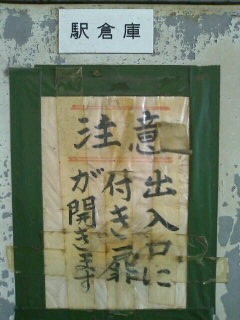 駅倉庫
注意
出入口に
付き扉
が開きます